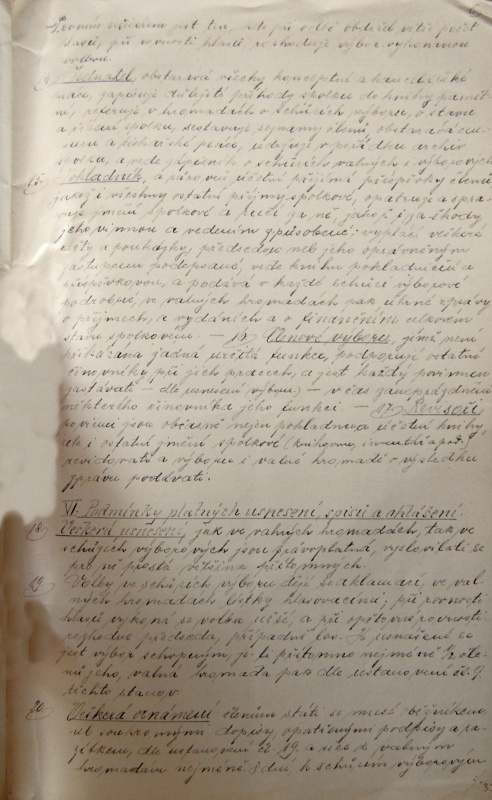 zvolen jest ten, kdo při volbě obdržel větší počet
hlasů, při rovnosti hlasů, rozhoduje výbor vykonanou
volbou.
Jednatel, obstarává všecky konceptní a kancelářské
práce, zapisuje důležité příhody spolku do knihy pamět-
ní, referuje v hromadách a schůzích výboru, o stavu
a jednání spolku, sestavuje seznamy členů, obstarává
a písařské práce, udržuje v pořádku archiv
spolku, a vede zápisník o schůzích valných i výborových
15. Pokladník, a zároveň účetní přijímá příspěvky členů
jakož i všechny ostatní příjmy spolkové, opatruje a spra-
vuje jmění spolkové a ručí za ně, jakož i za škody
jeho vinnou a vedením způsobené: vyplácí veškeré
účty a poukázky, předsedou neb jeho oprávněným
zástupcem podepsané, vede knihu pokladniční a
příspěvkovou, a podává v každé schůzi výborové
podrobné, ve valných hromadách pak úhrné zprávy
o příjmech, a vydáních a o finančním celkovém
stavu spolkovém. – 16, Členové výboru, jimž není
přikázána žádná určitá funkce, podporují ostatní
činovníky při jich pracech, a jest každý povinen
zastávati – dle usnešení výboru – v čas zaneprázdnění
některého činovníka jeho funkci. – 17. Revisoři
povinni jsou občasně nejen pokladnu a účetní knihy,
ale i ostatní jmění spolkové (knihovnu, inventář a pod.)
revidovati a výboru i valné hromadě o výsledku
zprávu podávati.
VI. Podmínky platných usnesení, spisů a ohlášení.
18. Veškerá usnešení, jak ve valných hromadách, tak ve
schůzích výborových jsou právoplatná, vyslovila-li se
pro ně prostá většina přítomných.
19. Volby ve schůzích výboru dějí se aklamací, ve val-
ných hromadách lístky hlasovacími; při rovnosti
hlasů vykoná se volba užší, a při opětované rovnosti
rozhodne předseda, případně los. K usnášení se
jest výbor schopným, je-li přítomno nejméně členů
jeho, valná hromada pak dle ustanovení č. 9.
těchto stanov.
20. Veškerá oznámení členům státi se musí běžníkem,
neb soukromými dopisy, opatřenými podpisy a ra-
zítkem, dle ustanovení čl. 19. a sice k valným
hromadám nejméně 8 dní, k schůzím výborovým